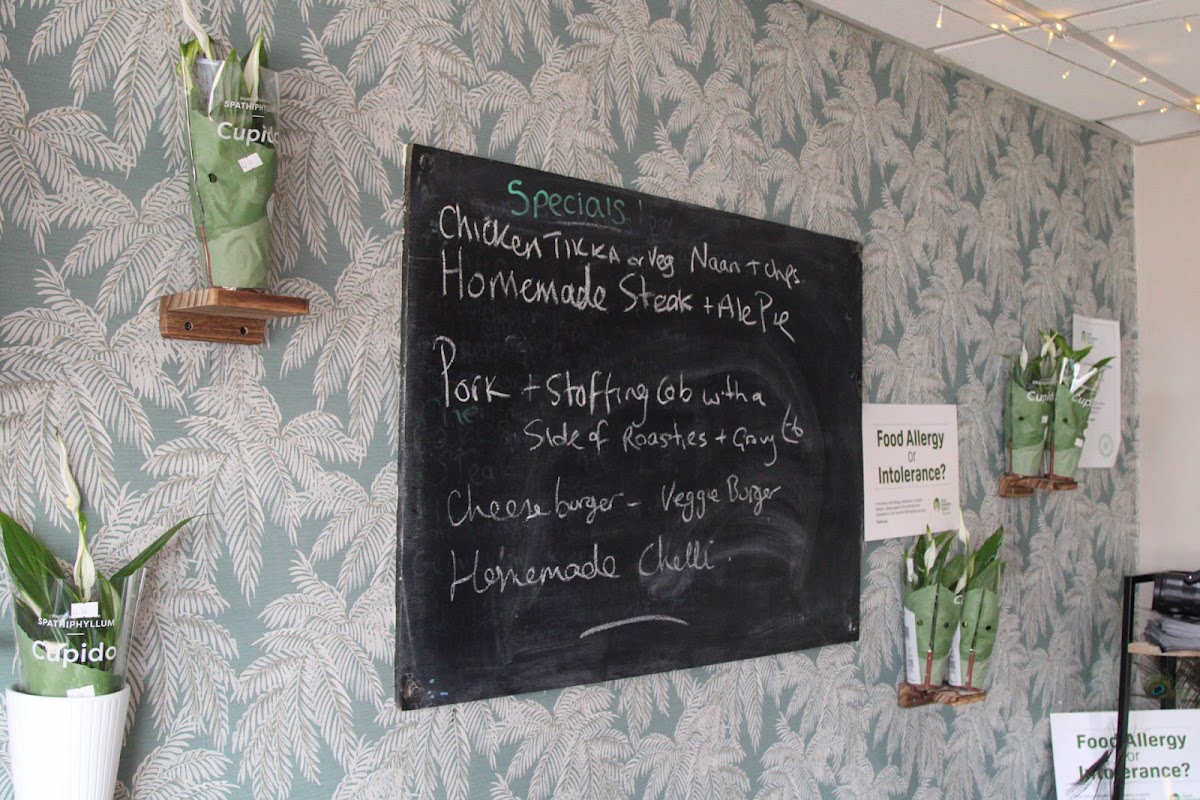 Specials
Chicken TIKKA or Veg Naan + Chps.
Homemade Steak + Ale Pie
Pork + Stoffing Cob with a
Side of Roasties + Gravy £6
Cheeseburger - Veggie Burger
Homemade Chelli.
SPATHIPHYLLUM
Cupido
SPATHIPHYLLUM
Cupido
Food Allergy
or
Intolerance?
Thank you.
Cupido
Food Allergy
or
Intolerance?